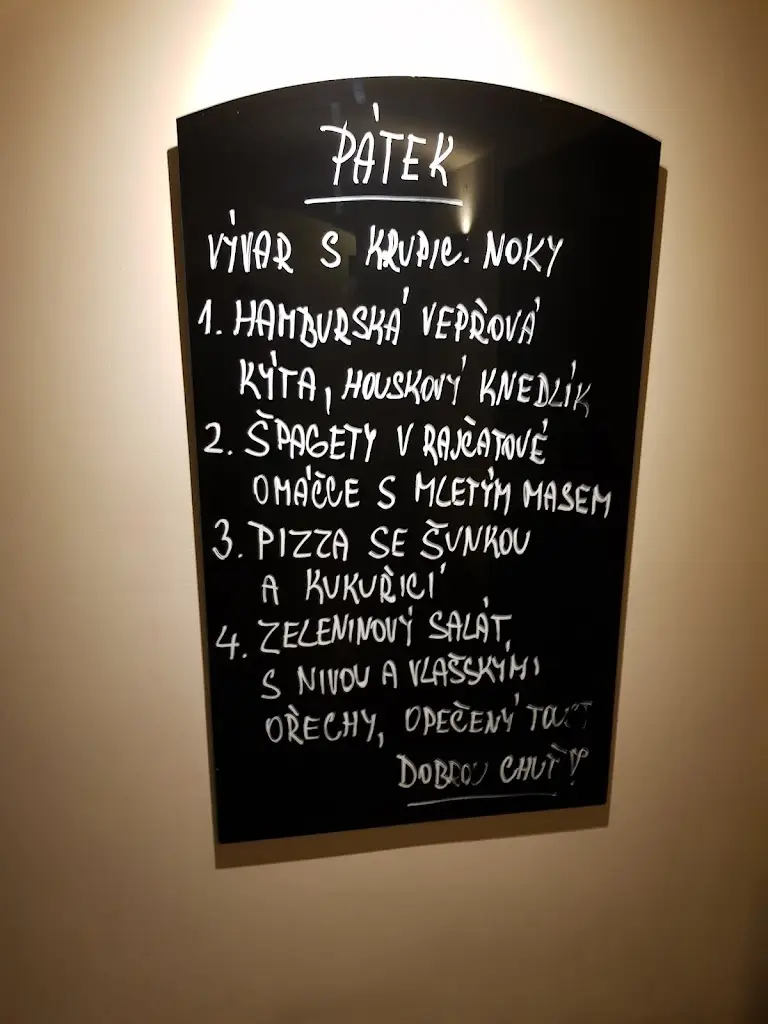 PÁTEK
VÝVAR S KRUPIC. NOKY
1. HAMBURSKÁ VEPŘOVÁ
KÝTA, HOUSKOVÝ KNEDLÍK
2. ŠPAGETY V RAJČATOVÉ
OMÁČCE S MLETÝM MASEM
3. PIZZA SE ŠUNKOU
A KUKUŘICÍ
4. ZELENINOVÝ SALÁT
S NIVOU A VLAŠSKÝMI
OŘECHY, OPEČENÝ TOUST
DOBROU CHUŤ!